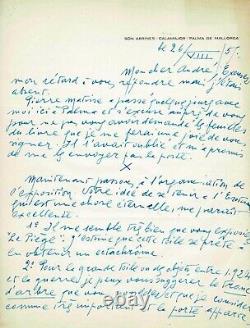 SON ABRINES - CALAMAJOR - PALMA DE MALLORCA
le 26/VIII/5
Mon cher André, Excusez
mon retard à vous répondre mais j'étais
absent.
Pierre Matisse a passé quelques jours avec
moi ici à Palma et s'excuse auprès de vous
pour ne pas vous avoir donné la feuille
du livre que je me ferai une joie de vous
signer. Il l'avait oublié et m'a promis
de me l'envoyer par la poste.
X
Maintenant passons à l'organisation de
l'exposition. Votre idée de se tenir à l'
qui est une chose éternelle, me paraît
excellente.
1º Il me semble très bien que vous exposiez
"Le Piège". J'estime que cette toile se prête à
en obtenir un ektachrome.
2º Pour la grande toile ou des objets, entre 1924
et la guerre, je peux vous suggérer le tronc
d'arbre que vous que je considère
comme très important et la porte